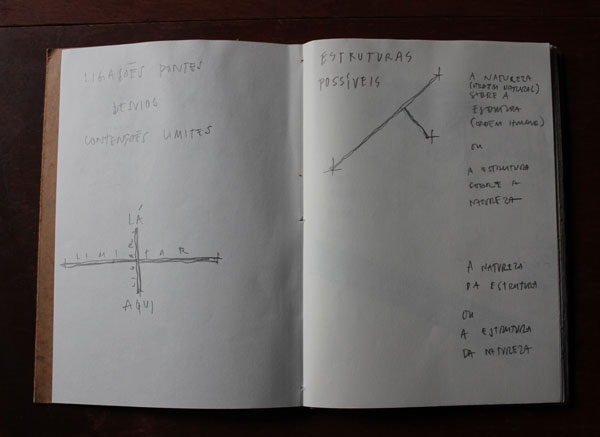 LIGAÇÕES PONTES
DESVIOS
CONTENÇÕES LIMITES
LÁ
LIMITAR
AQUI
ESTRUTURAS
POSSÍVEIS
A NATUREZA
(ORDEM NATURAL)
SOBRE A
ESTRUTURA
(ORDEM HUMANA)
OU
A ESTRUTURA
SOBRE A
NATUREZA
A NATUREZA
DA ESTRUTURA
OU
A ESTRUTURA
DA NATUREZA